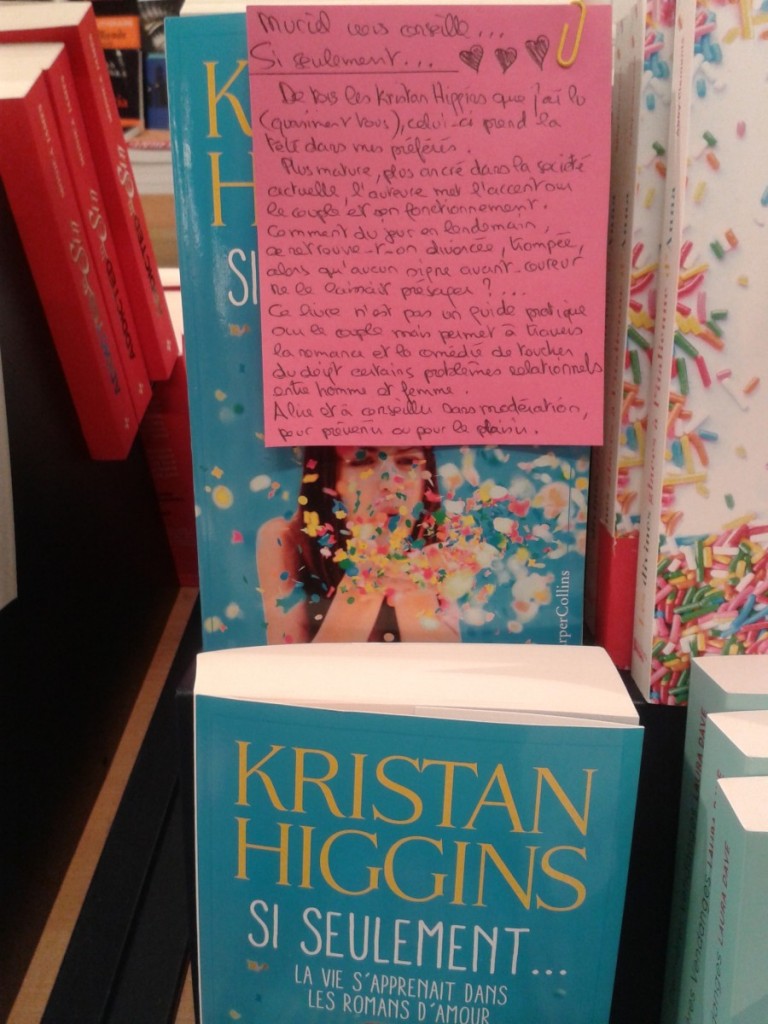 Muriel vous conseille...
Si seulement...
De tous les Kristan Higgins que j'ai lu
(quasiment tous), celui-ci prend la
tête dans mes préférés.
Plus mature, plus ancré dans la société
actuelle, l'auteure met l'accent sur
le couple et son fonctionnement.
Comment du jour en lendemain,
se retrouve-t-on divorcée, trompée,
alors qu'aucun signe avant-coureur
ne le laissait présager ?...
Ce livre n'est pas un guide pratique
sur le couple mais permet à travers
la romance et la comédie de toucher
du doigt certains problèmes relationnels
entre homme et femme.
A lire et à conseiller sans modération,
pour prévenir ou pour le plaisir.
K
H
SI
rperCollins
KRISTAN
HIGGINS
SI SEULEMENT...
LA VIE S'APPRENAIT DANS
LES ROMANS D'AMOUR
LAURA DAVE
LAURA DAVE
LAURA DAVE
ADDICTED
ADDICTED